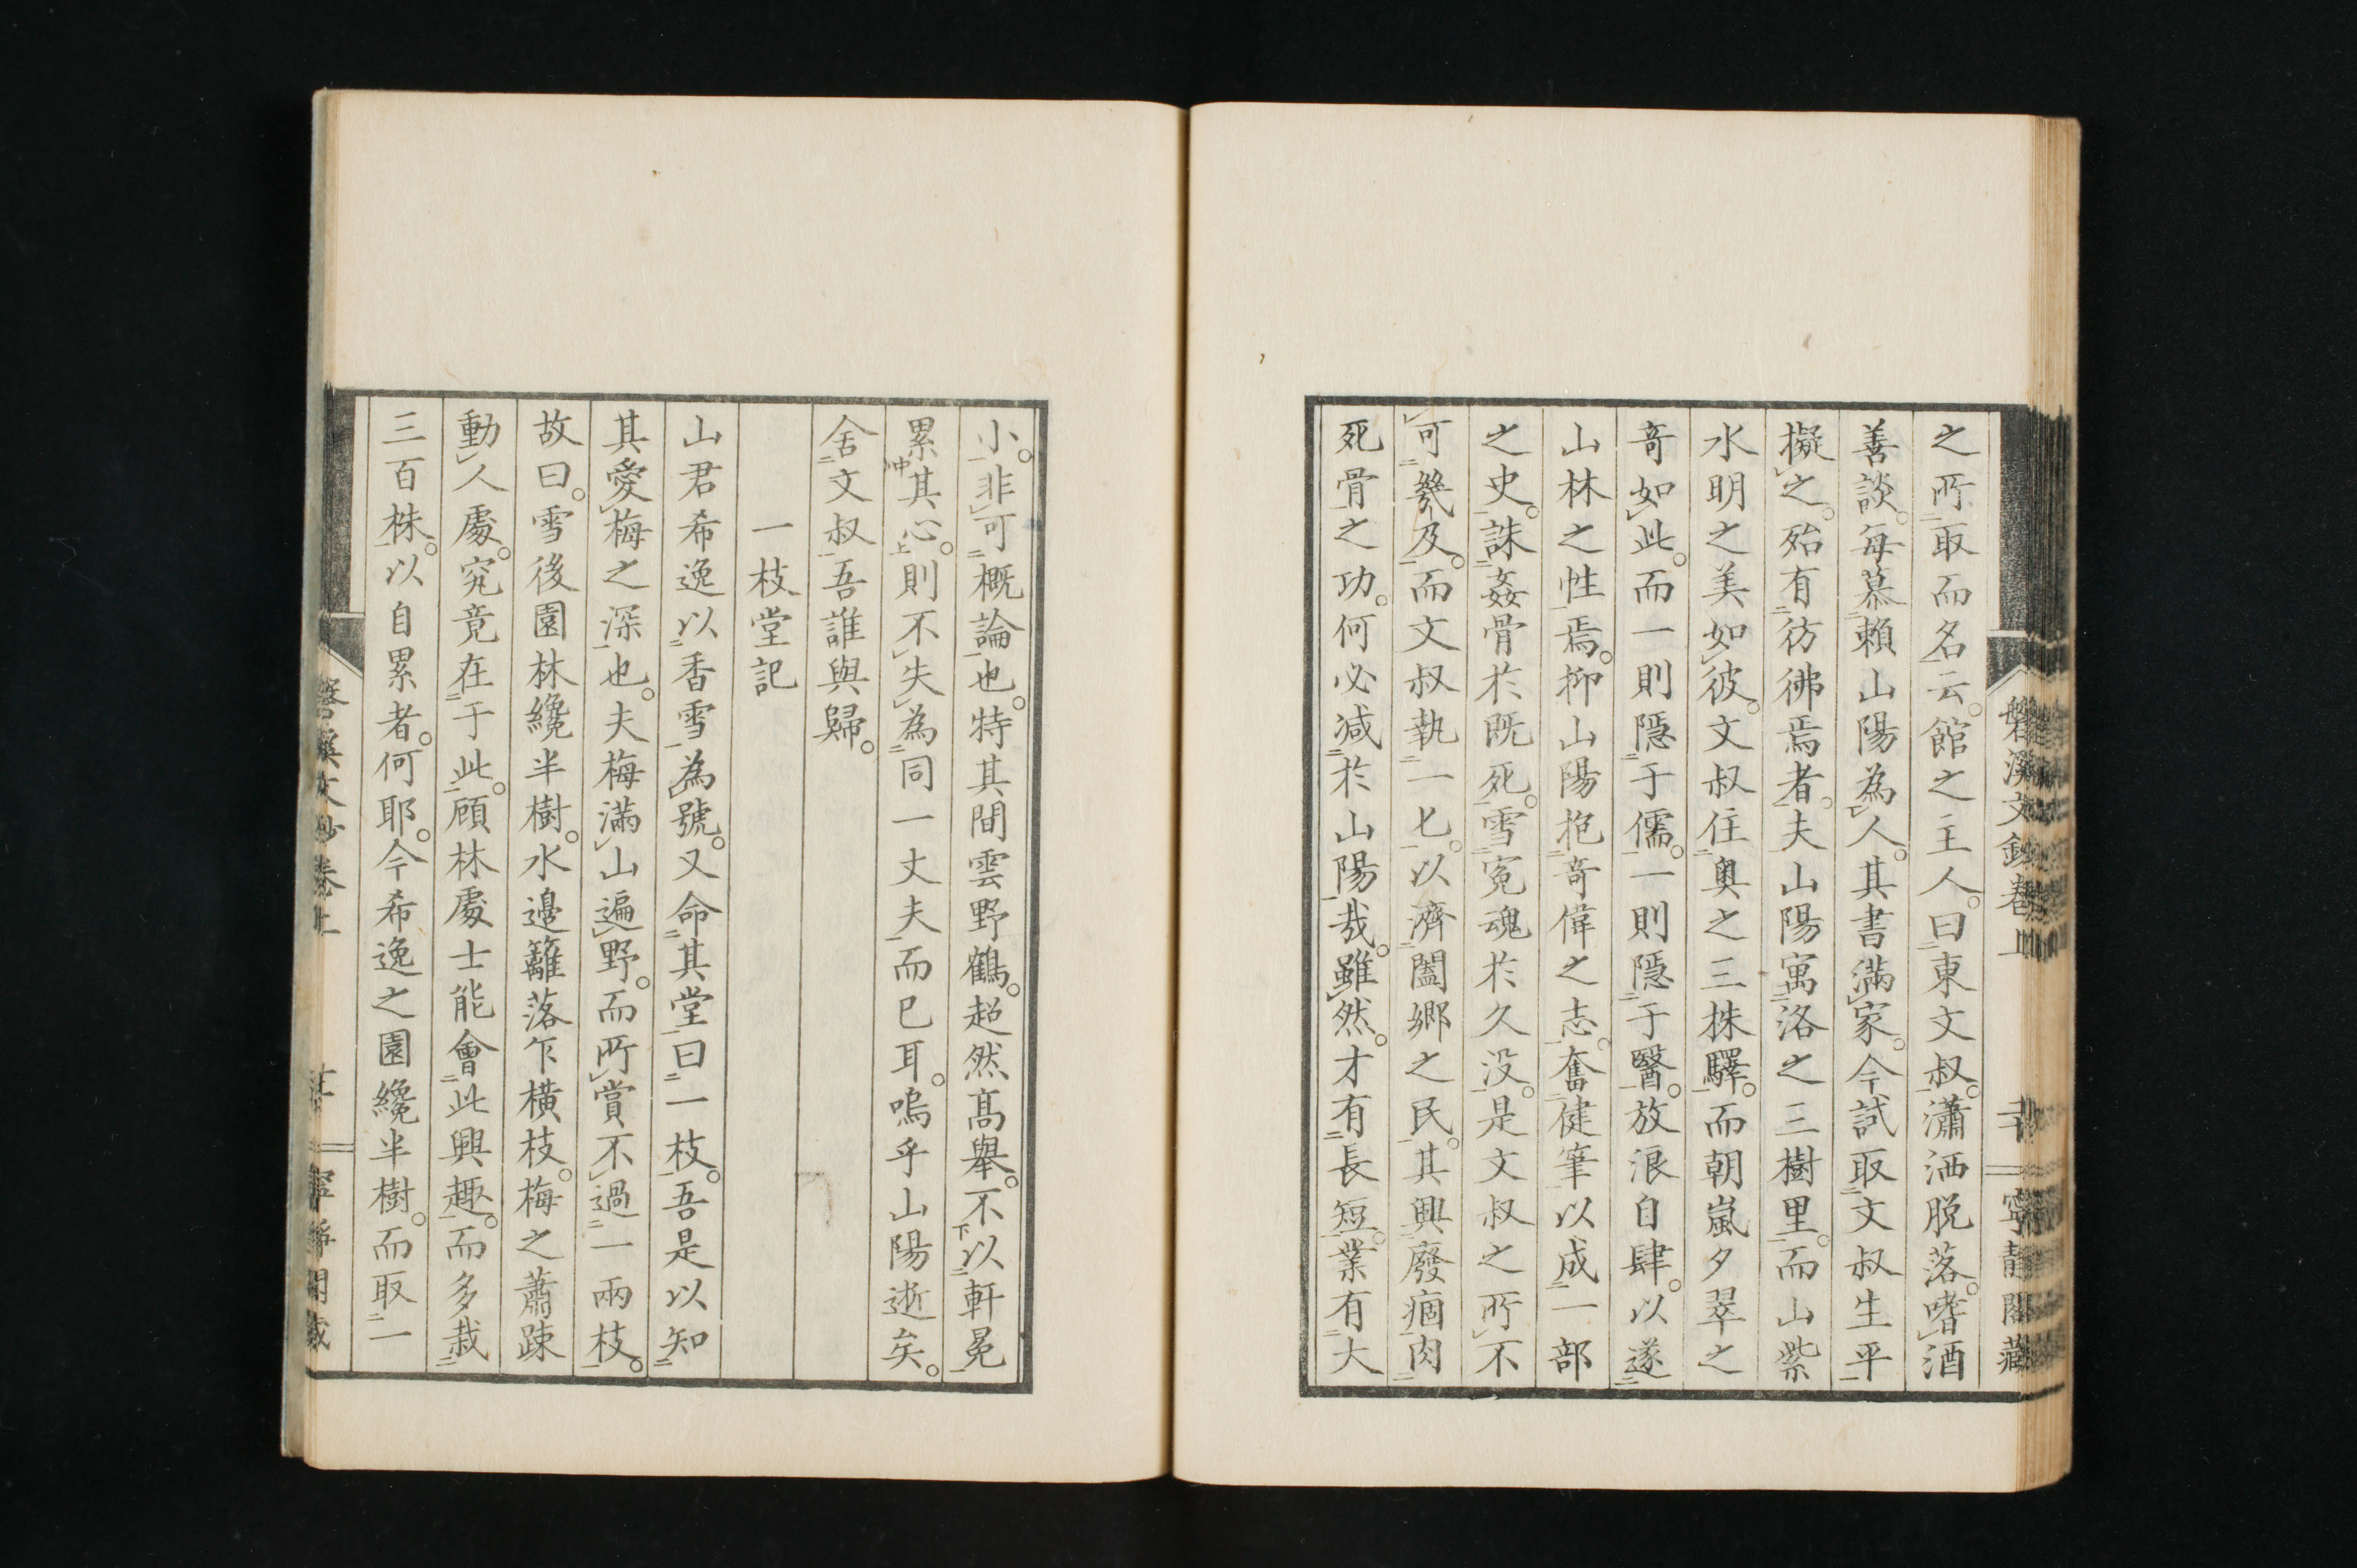 之所取而名云。館之主人。曰東文叔。瀟洒脱落。嗜酒
善談。每慕賴山陽為人。其書滿家。今試取文叔生平
擬之。殆有彷彿焉者。夫山陽寓洛之三樹里。而山紫
水明之美如彼。文叔住奧之三株驛。而朝嵐夕翠之
奇如此。而一則隱于儒。一則隱于醫。放浪自肆。以遂
山林之性焉。抑山陽抱奇偉之志。奮健筆以成一部
之史。誅姦骨於既死。雪冤魂於久沒。是文叔之所不
可幾及。而文叔執一匕。以濟闔鄉之民。其興廢痼肉
死骨之功。何必減於山陽哉。雖然。才有長短。業有大
小。非可概論也。特其間雲野鶴。超然高舉。不以軒冕
累其心。則不失為同一丈夫而已耳。嗚乎山陽逝矣。
舍文叔吾誰與歸。
一枝堂記
山君希逸以香雪為號。又命其堂曰一枝。吾是以知
其愛梅之深也。夫梅滿山遍野。而所賞不過一兩枝。
故曰。雪後園林纔半樹。水邊籬落乍橫枝。梅之蕭疎
動人處。究竟在于此。顧林處士能會此興趣。而多栽
三百株。以自累者。何耶。今希逸之園纔半樹。而取一
磐溪文鈔卷上
寧靜閣藏